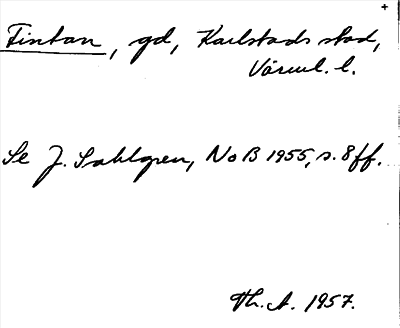 Tintan, gd, Karlstads stad,
Värml. l.
Se J. Sahlgren, NoB 1955, s. 8 ff.
Th. A. 1957.